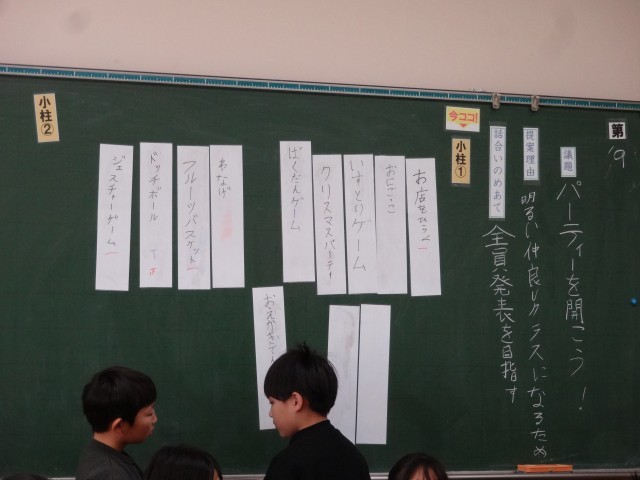 第
19
議題
パーティーを開こう!
提案理由
明るい仲良しクラスになるため
話合いのめあて
全員発表を目指す
今ココ!
小柱①
お店をひらく
おにごっこ
いすとりゲーム
クリスマスパーティ
ばくだんゲーム
わなげ
フルーツバスケット
ドッチボール
ジェスチャーゲーム
小柱②